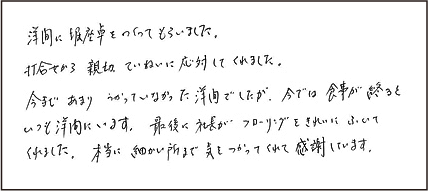 洋間に堀座卓をつくってもらいました。
打合せから 親切 ていねいに応対してくれました。
今まで あまり つかっていなかった洋間でしたが、今では 食事が 終ると
いつも洋間にいます。 最後に社長が フローリングをきれいに ふいて
くれました。 本当に 細かい所まで 気をつかってくれて 感謝しています。